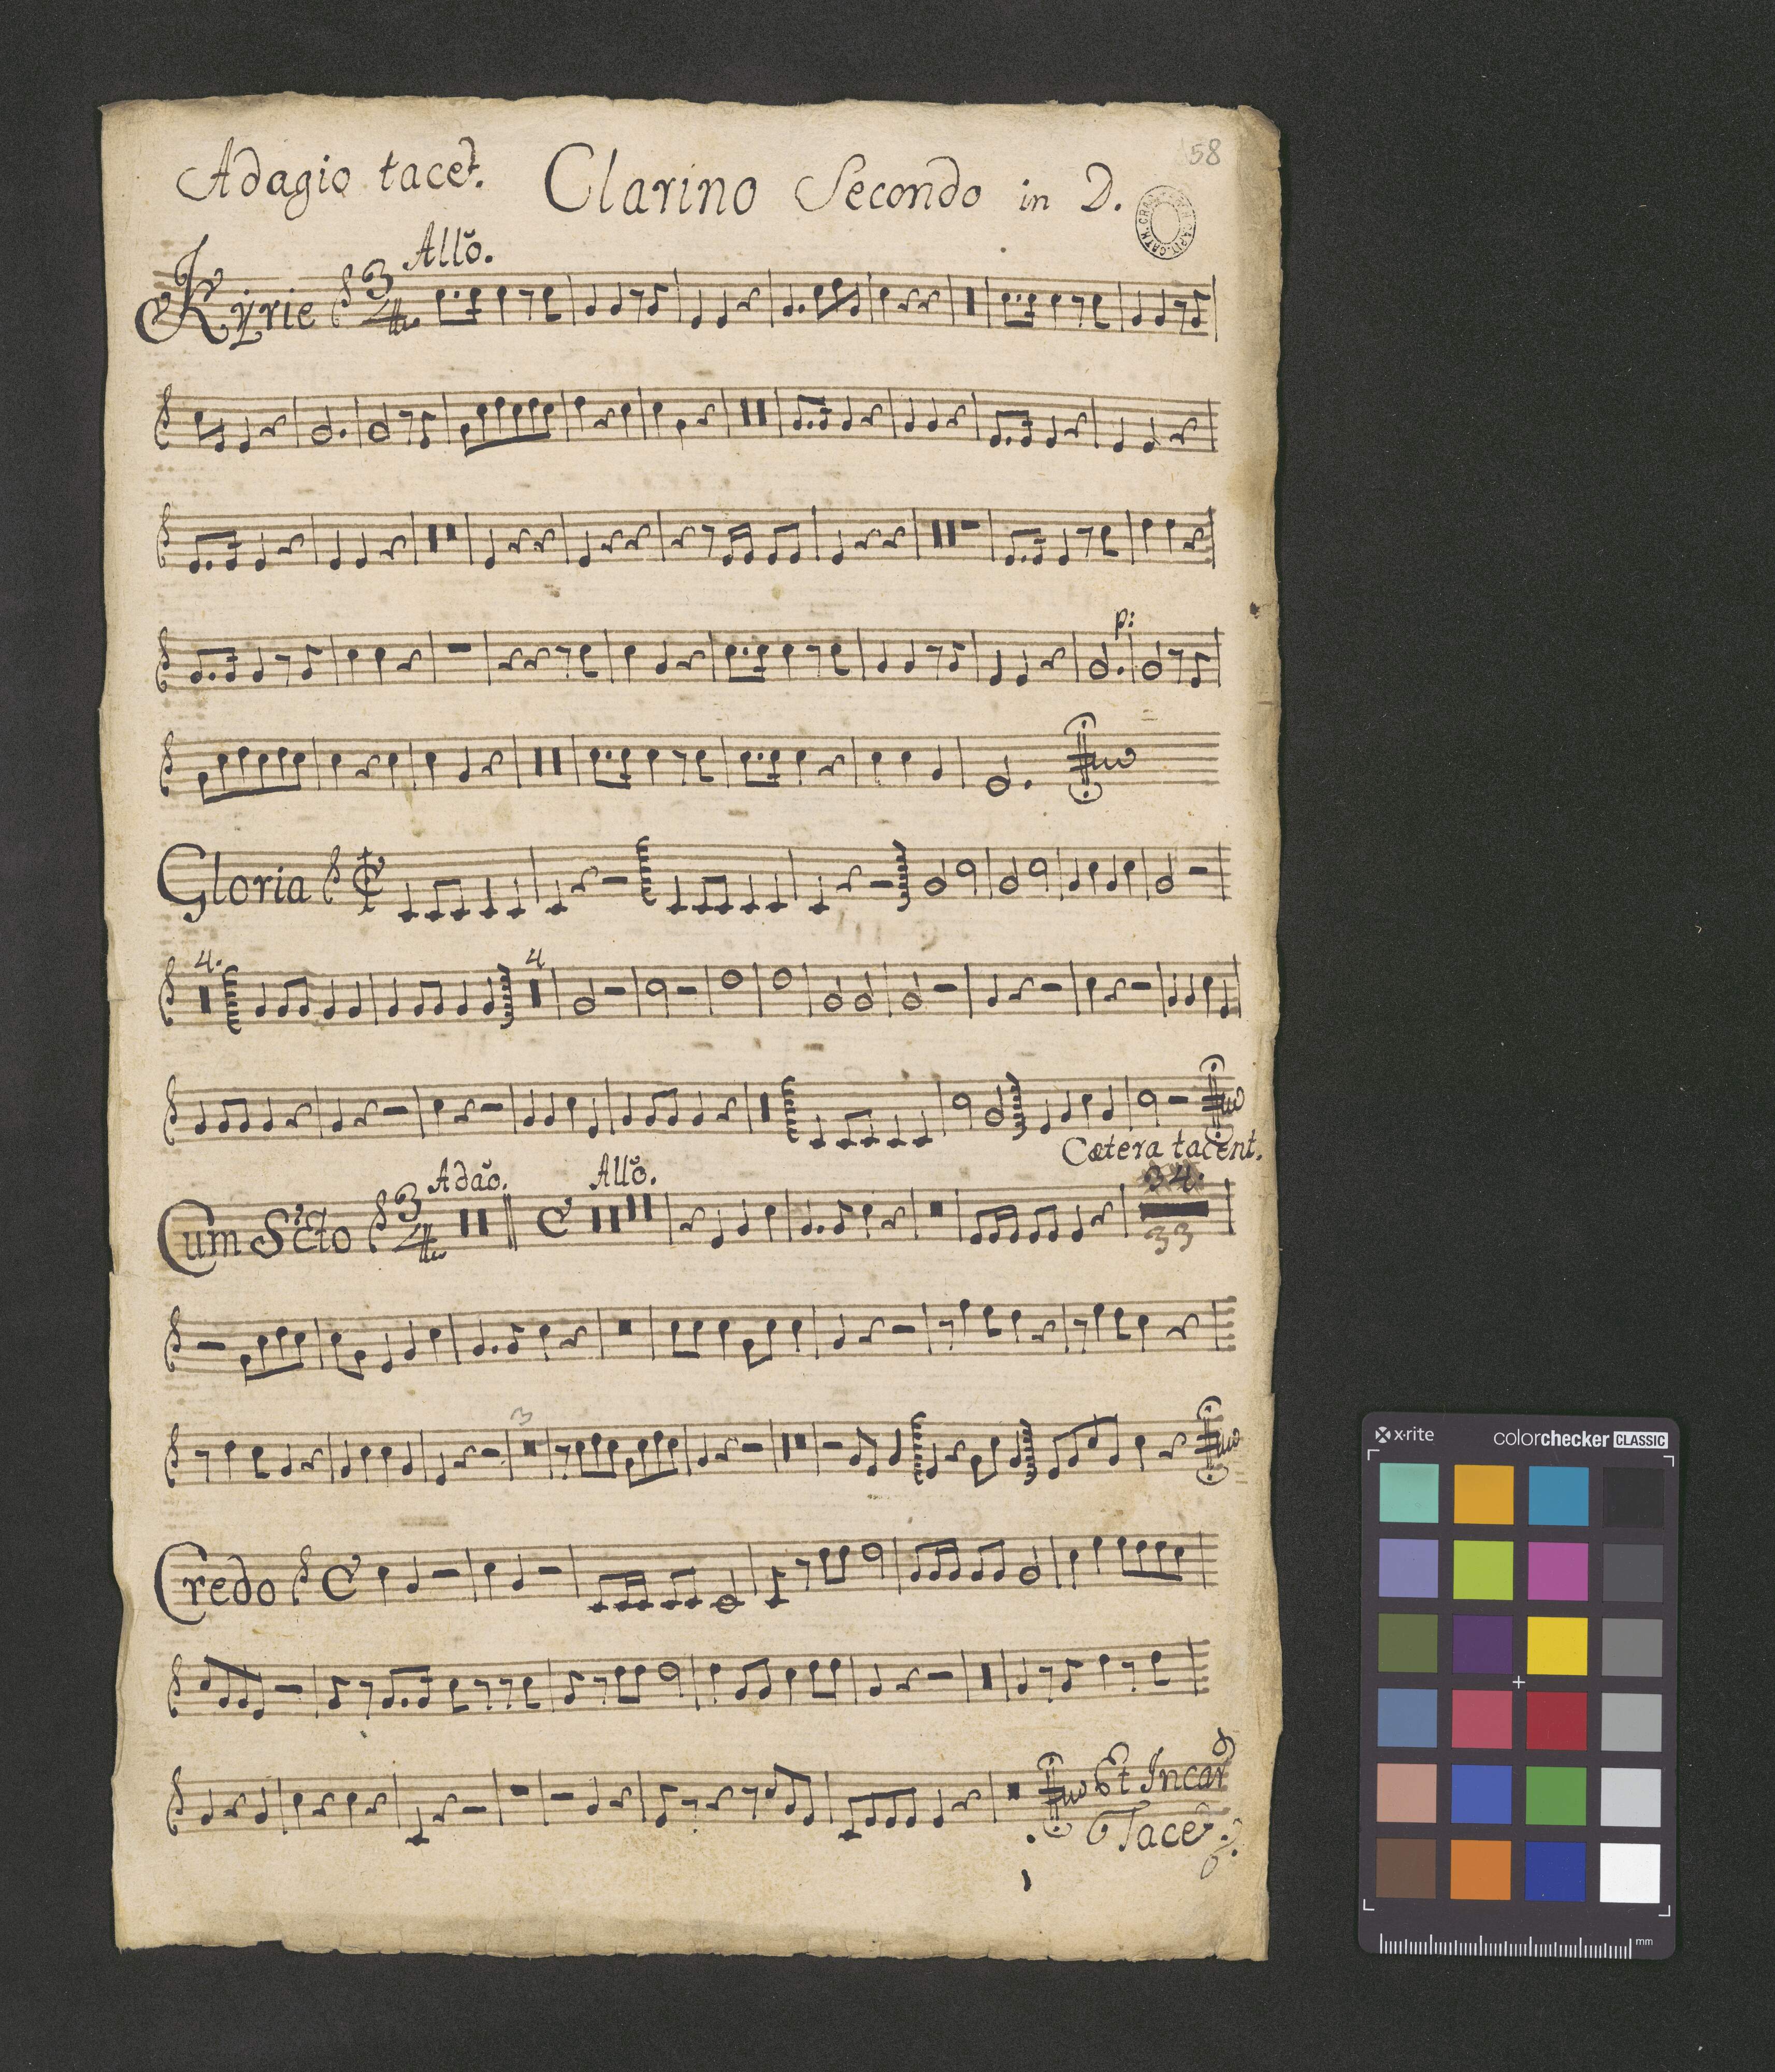 58
Adagio tacet. Clarino Secondo in D.
Allo.
Kyrie 3/4
p:
Gloria
4. 4
Cætera tacent.
Adão. Allo. 34.
Cum Scto 3/4 C 33
3
Credo C
Et Incar
Tacet.
x-rite colorchecker CLASSIC
mm